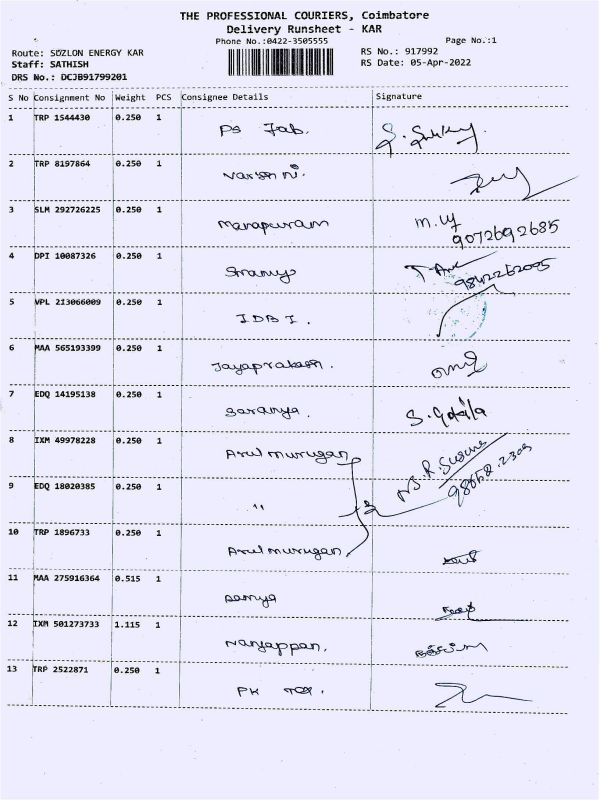 THE PROFESSIONAL COURIERS, Coimbatore
Delivery Runsheet - KAR
Phone No.:0422-3505555
Page No.:1
Route: SUZLON ENERGY KAR
RS No.: 917992
Staff: SATHISH
RS Date: 05-Apr-2022
DRS No.: DCJB91799201
S No Consignment No Weight PCS Consignee Details Signature
1 TRP 1544430 0.250 1 PS Fab.
2 TRP 8197864 0.250 1
3 SLM 292726225 0.250 1 manapuram 9072692685
4 DPI 10087326 0.250 1 9842262005
5 VPL 213066009 0.250 1 IDBI.
6 MAA 565193399 0.250 1 Jayaprakash.
7 EDQ 14195138 0.250 1 Saranya.
8 IXM 49978228 0.250 1 Arul murugan
9 EDQ 18020385 0.250 1 "
10 TRP 1896733 0.250 1 Arul murugan
11 MAA 275916364 0.515 1 Ramya
12 IXM 501273733 1.115 1 Nanjappan.
13 TRP 2522871 0.250 1 PK